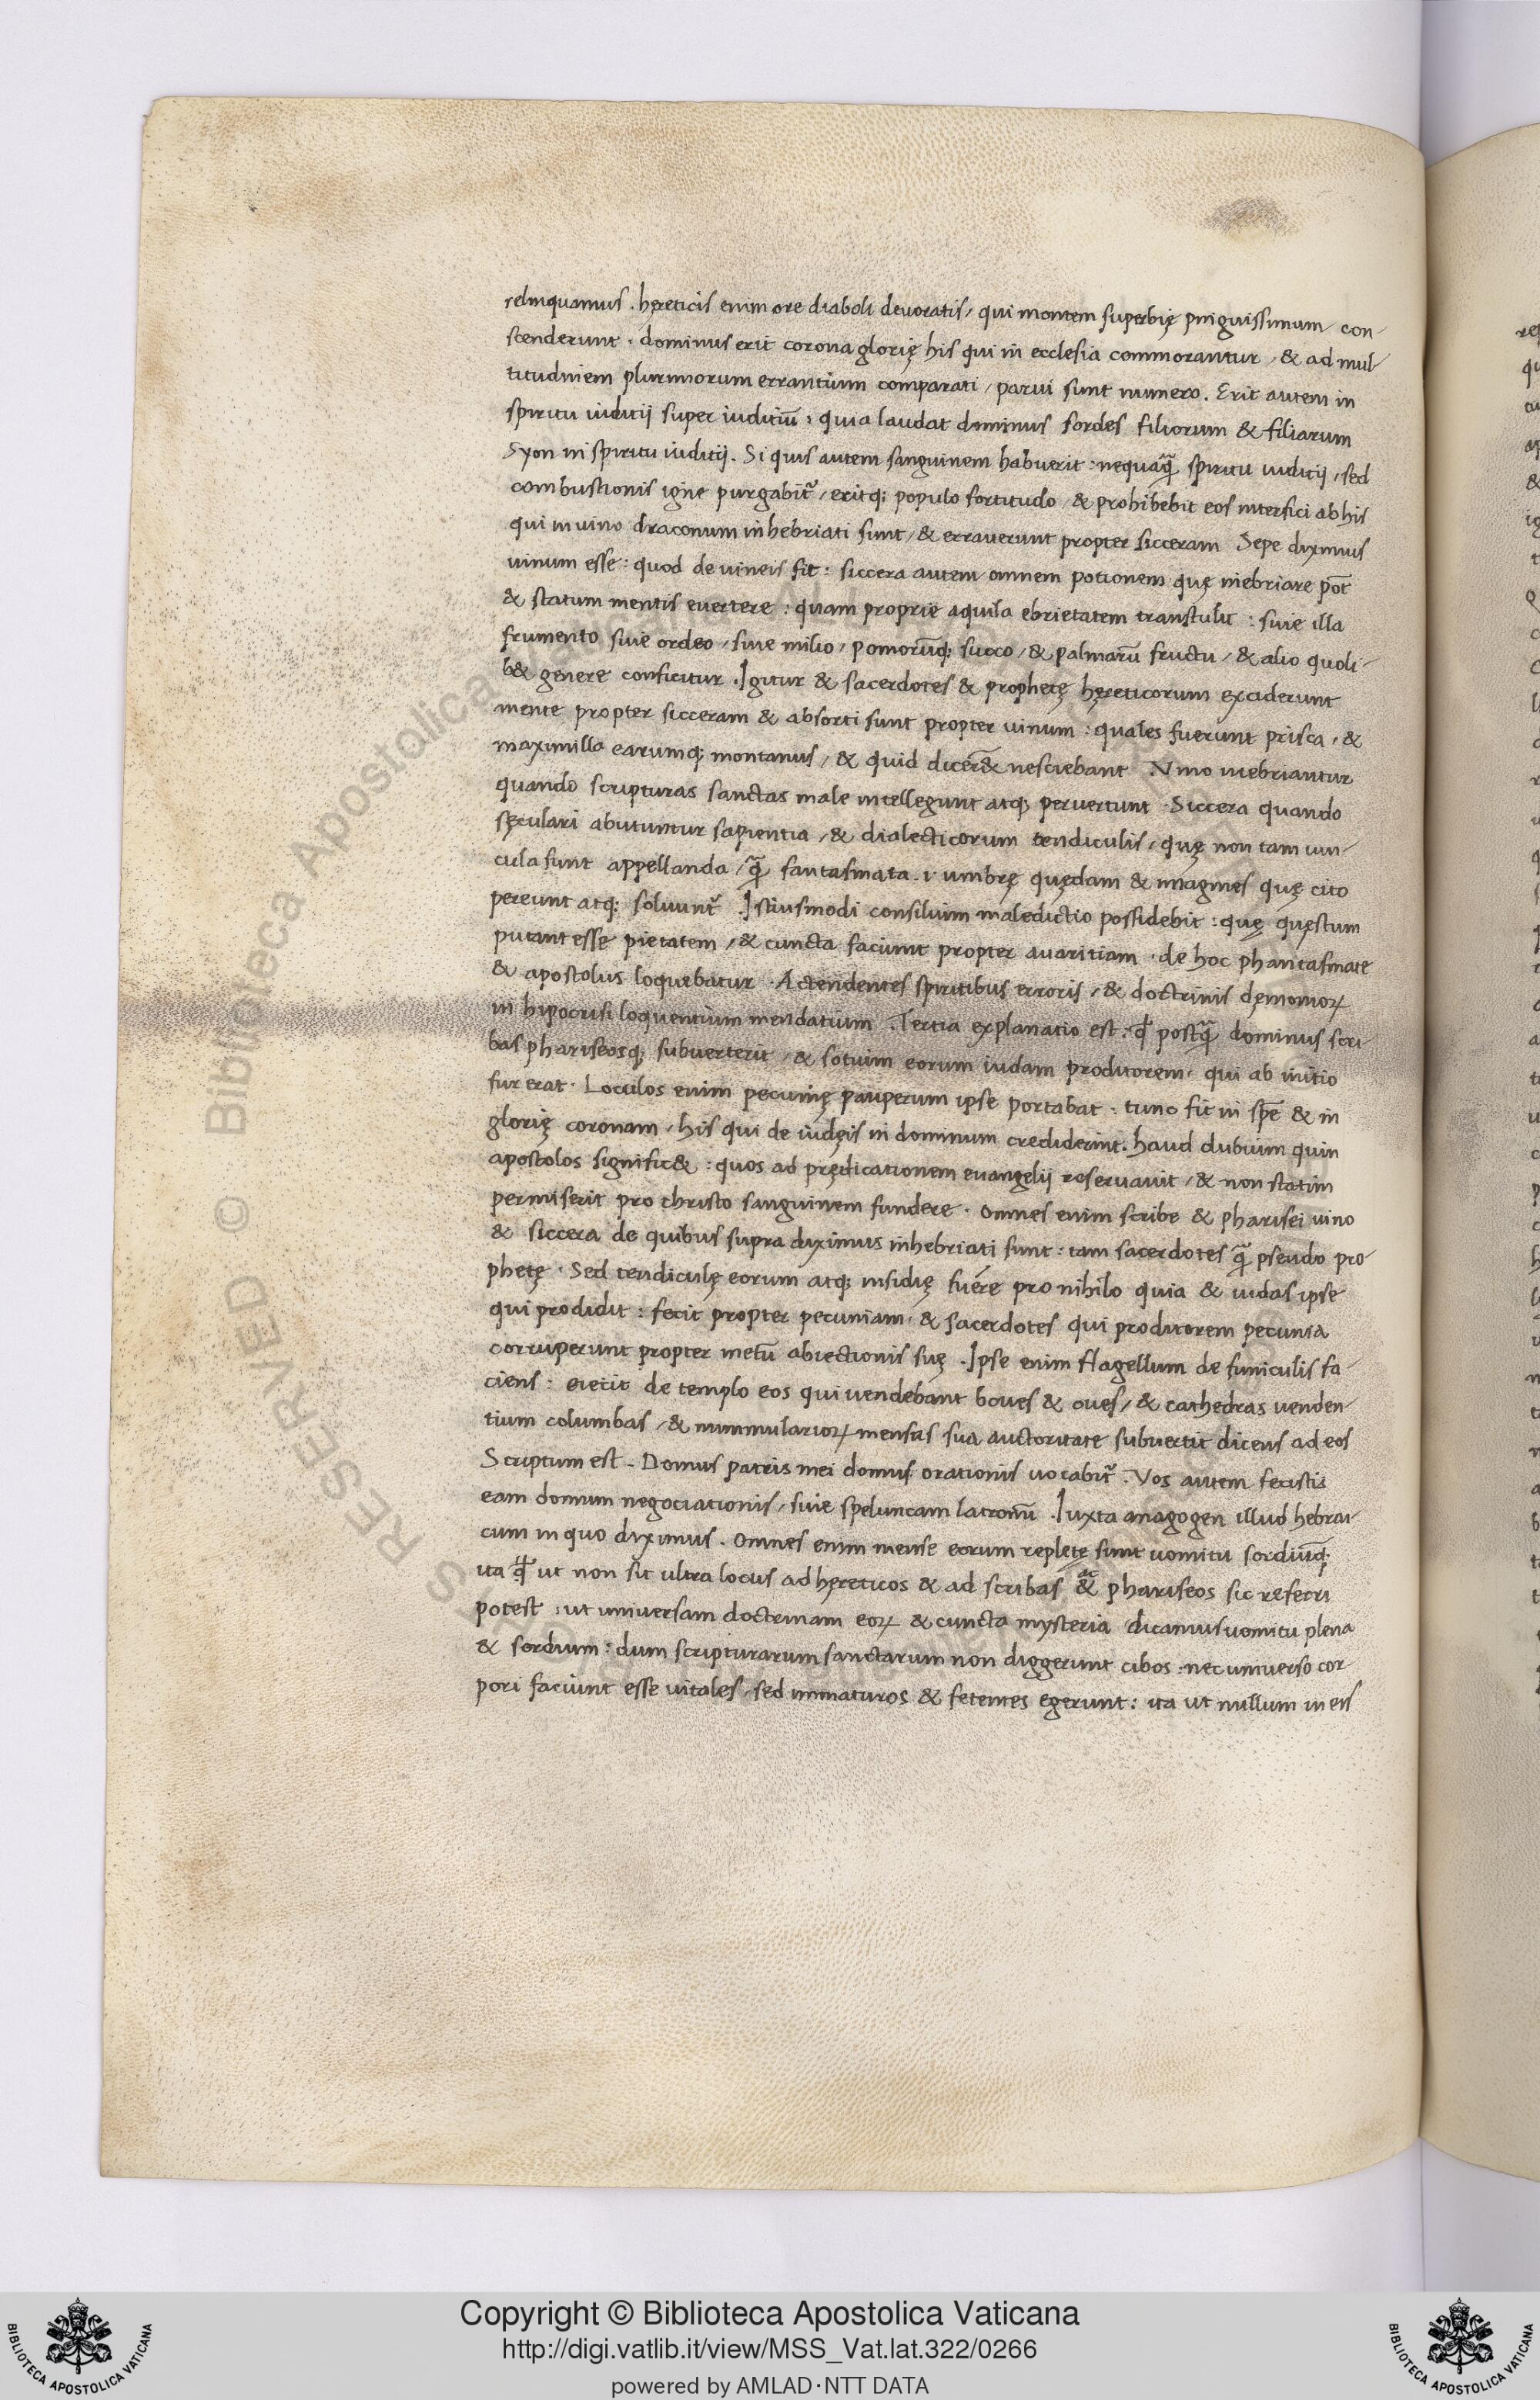 relinquamus. hęreticis enim ore diaboli deuoratis, qui montem superbię pinguissimum con-
scenderunt. dominus erit corona glorię his qui in ecclesia commorantur, & ad mul-
titudinem plurimorum errantium comparati, parui sunt numero. Erit autem in
spiritu iuditij super iuditiū: quia laudat dominus sordes filiorum & filiarum
Syon in spiritu iuditij. Si quis autem sanguinem habuerit: nequaq̃ spiritu iuditij, sed
combustionis igne purgabit᷑, eritq; populo fortitudo, & prohibebit eos interfici ab his
qui in uino draconum inhebriati sunt, & errauerunt propter sicceram Sepe diximus
uinum esse: quod de uineis fit: siccera autem omnem potionem quę inebriare pōt
& statum mentis euertere: quam proprie aquila ebrietatem transtulit: siue illa
frumento siue ordeo, siue milio, pomorūq; succo, & palmarū fructu, & alio quoli-
b& genere conficitur. Igitur & sacerdotes & prophetę hęreticorum exciderunt
mente propter sicceram & absorti sunt propter uinum: quales fuerunt prisca, &
maximilla earumq; montanus, & quid dicer& nesciebant Vino inebriantur
quando scripturas sanctas male intellegunt atq; peruertunt. Siccera quando
sęculari abutuntur sapientia, & dialecticorum tendiculis, quę non tam uin-
cula sunt appellanda, q̃ fantasmata. i. umbrę quędam & imagines quę cito
pereunt atq; soluunt᷑. Istiusmodi consilium maledictio possidebit: quę quęstum
putant esse pietatem, & cuncta faciunt propter auaritiam. de hoc phantasmate
& apostolus loquebatur. Actendentes spiritibus erroris, & doctrinis dęmonioꝝ
in hipocrisi loquentium mendatium. Tertia explanatio est: ꝙ postq̃ dominus scri-
bas phariseosq; subuerterit, & sotium eorum iudam proditorem, qui ab initio
fur erat. Loculos enim pecunię pauperum ipse portabat: tunc fit in spē & in
glorię coronam, his qui de iudęis in dominum crediderint. haud dubium quin
apostolos signific&: quos ad prędicationem euangelij reseruauit, & non statim
permiserit pro christo sanguinem fundere. Omnes enim scribe & pharisei uino
& siccera de quibus supra diximus inhebriati sunt: tam sacerdotes q̃ pseudo pro-
phetę. Sed tendiculę eorum atq; insidię fuere pro nihilo quia & iudas ipse
qui prodidit: fecit propter pecuniam, & sacerdotes qui proditorem pecunia
corruperunt propter metū abiectionis suę. Ipse enim flagellum de funiculis fa-
ciens: eiecit de templo eos qui uendebant boues & oues, & cathedras uenden-
tium columbas, & nummularioꝝ mensas sua auctoritate subuertit dicens ad eos
Scriptum est. Domus patris mei domus orationis uocabit᷑. Vos autem fecistis
eam domum negociationis, siue speluncam latronū. Iuxta anagogen illud hebrai-
cum in quo diximus. Omnes enim mense eorum replete sunt uomitu sordiūq;
ita ꝙ ut non sit ultra locus ad hęreticos & ad scribas & ac phariseos sic referri
potest: ut uniuersam doctrinam eoꝝ & cuncta mysteria dicamus uomitu plena
& sordium: dum scripturarum sanctarum non diggerunt cibos: nec uniuerso cor-
pori faciunt esse uitales, sed immaturos & fetentes egerunt: ita ut nullum in eis
Copyright © Biblioteca Apostolica Vaticana
http://digi.vatlib.it/view/MSS_Vat.lat.322/0266
powered by AMLAD·NTT DATA
BIBLIOTECA APOSTOLICA VATICANA
BIBLIOTECA APOSTOLICA VATICANA